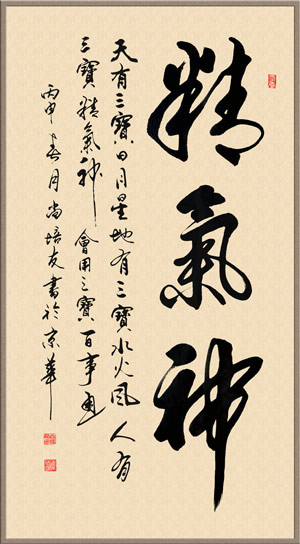 精氣神
天有三寶日月星地有三寶水火風人有
三寶精氣神會用三寶百事通
丙申春月尚培友書於京華